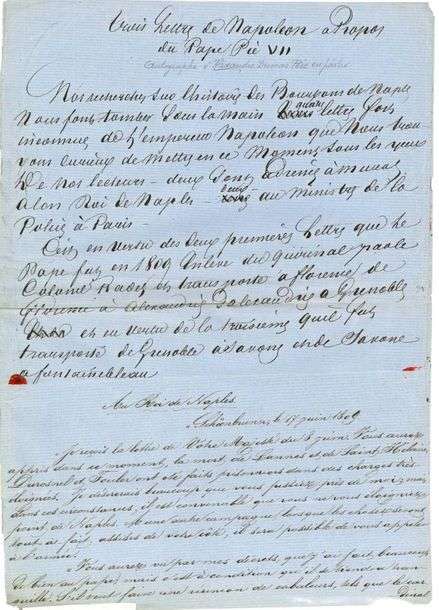 Trois Lettres de Napoleon à Propos
du Pape Pie VII
Autographe d'Alexandre Dumas
Nos recherches sur l'histoire des Bourbons de Naples
Nous font tomber sous la main quatre lettres fort
inconnues de l'empereur Napoleon que nous trou
vons curieux de mettre en ce moment sous les yeux
de nos lecteurs – deux sont adressées à murat
alors Roi de Naples – deux au ministre de la
Police à Paris –
C'est en vertu des deux premières lettres que le
Pape fut en 1809 enlevé du quirinal par le
Colonel Radet et transporté a florence de
florence à Alexandrie a Grenoble
et en vertu de la troisieme qu'il fut
transporté de Grenoble à Savone et de Savone
a fontainebleau
Au Roi de Naples
Schönbrunn, le 17 juin 1809
Je reçois la lettre de Votre Majesté du 8 juin. Vous aurez
appris dans ce moment, la mort de Lannes et de Saint Hilaire,
Durosnel et Fouler ont été faits prisonniers dans des charges très
éloignées. Je désirerais beaucoup que vous fussiez près de moi; mais,
dans ces circonstances, il est convenable que vous ne vous éloigniez
point de Naples. A une autre campagne, lorsque les choses seront
tout à fait, assises de votre côté, il sera possible de vous appeler
à l'armée.
Vous aurez vu par mes décrets, que j'ai fait beaucoup
de bien au pape; mais c'est à condition qu'il se tiendra tran
quille. S'il veut faire une réunion de cabaleurs, tels que le car
dinal